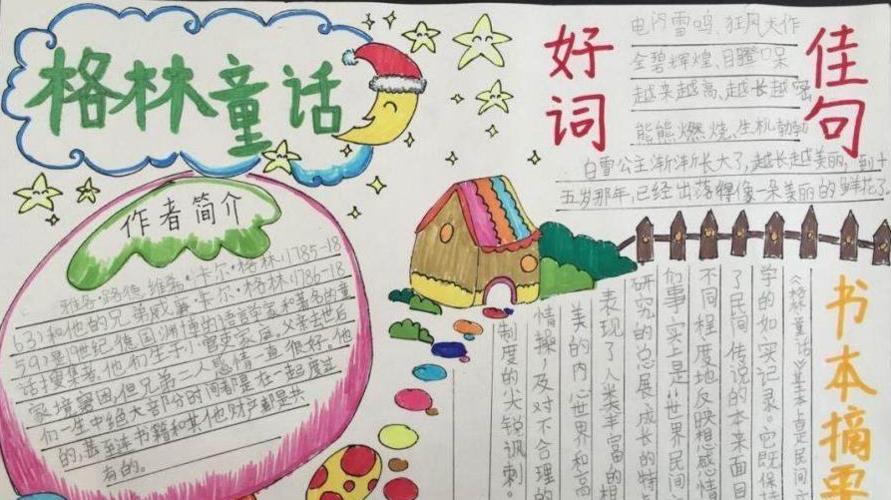 格林童话
作者简介
雅各·路德维希·卡尔·格林(1785-18
63)和他的兄弟威廉·卡尔·格林(1786-18
59)是19世纪德国渊博的语言学家和著名的童
话搜集者。他们生于小官吏家庭。父亲去世后
家境窘困,但兄弟二人感情一直很好。他
们一生中绝大部分时间都是在一起度过
的,甚至连书籍和其他财产都是共
有的。
好词
佳句
电闪雪鸣、狂风大作
金碧辉煌、目瞪口呆
越来越高、越长越密
熊熊燃烧、生机勃勃
白雪公主渐渐长大了,越长越美丽,到十
五岁那年,已经出落得像一朵美丽的鲜花了
书本摘要
《格林童话》基本上是民间
学的如实记录。它既保
了民间传说的本来面目
不同程度地反映想感性
们事实上是"世界民间
研究的总展,成长的特点
表现了人类丰富的想
美的内心世界和高
情操,及对不合理的
制度的尖锐讽刺。